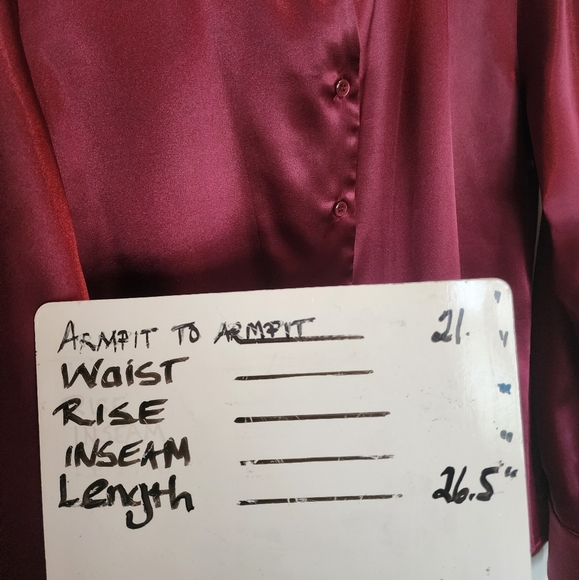 ARMPIT TO ARMPIT 21."
WAIST "
RISE "
INSEAM "
Length 26.5"